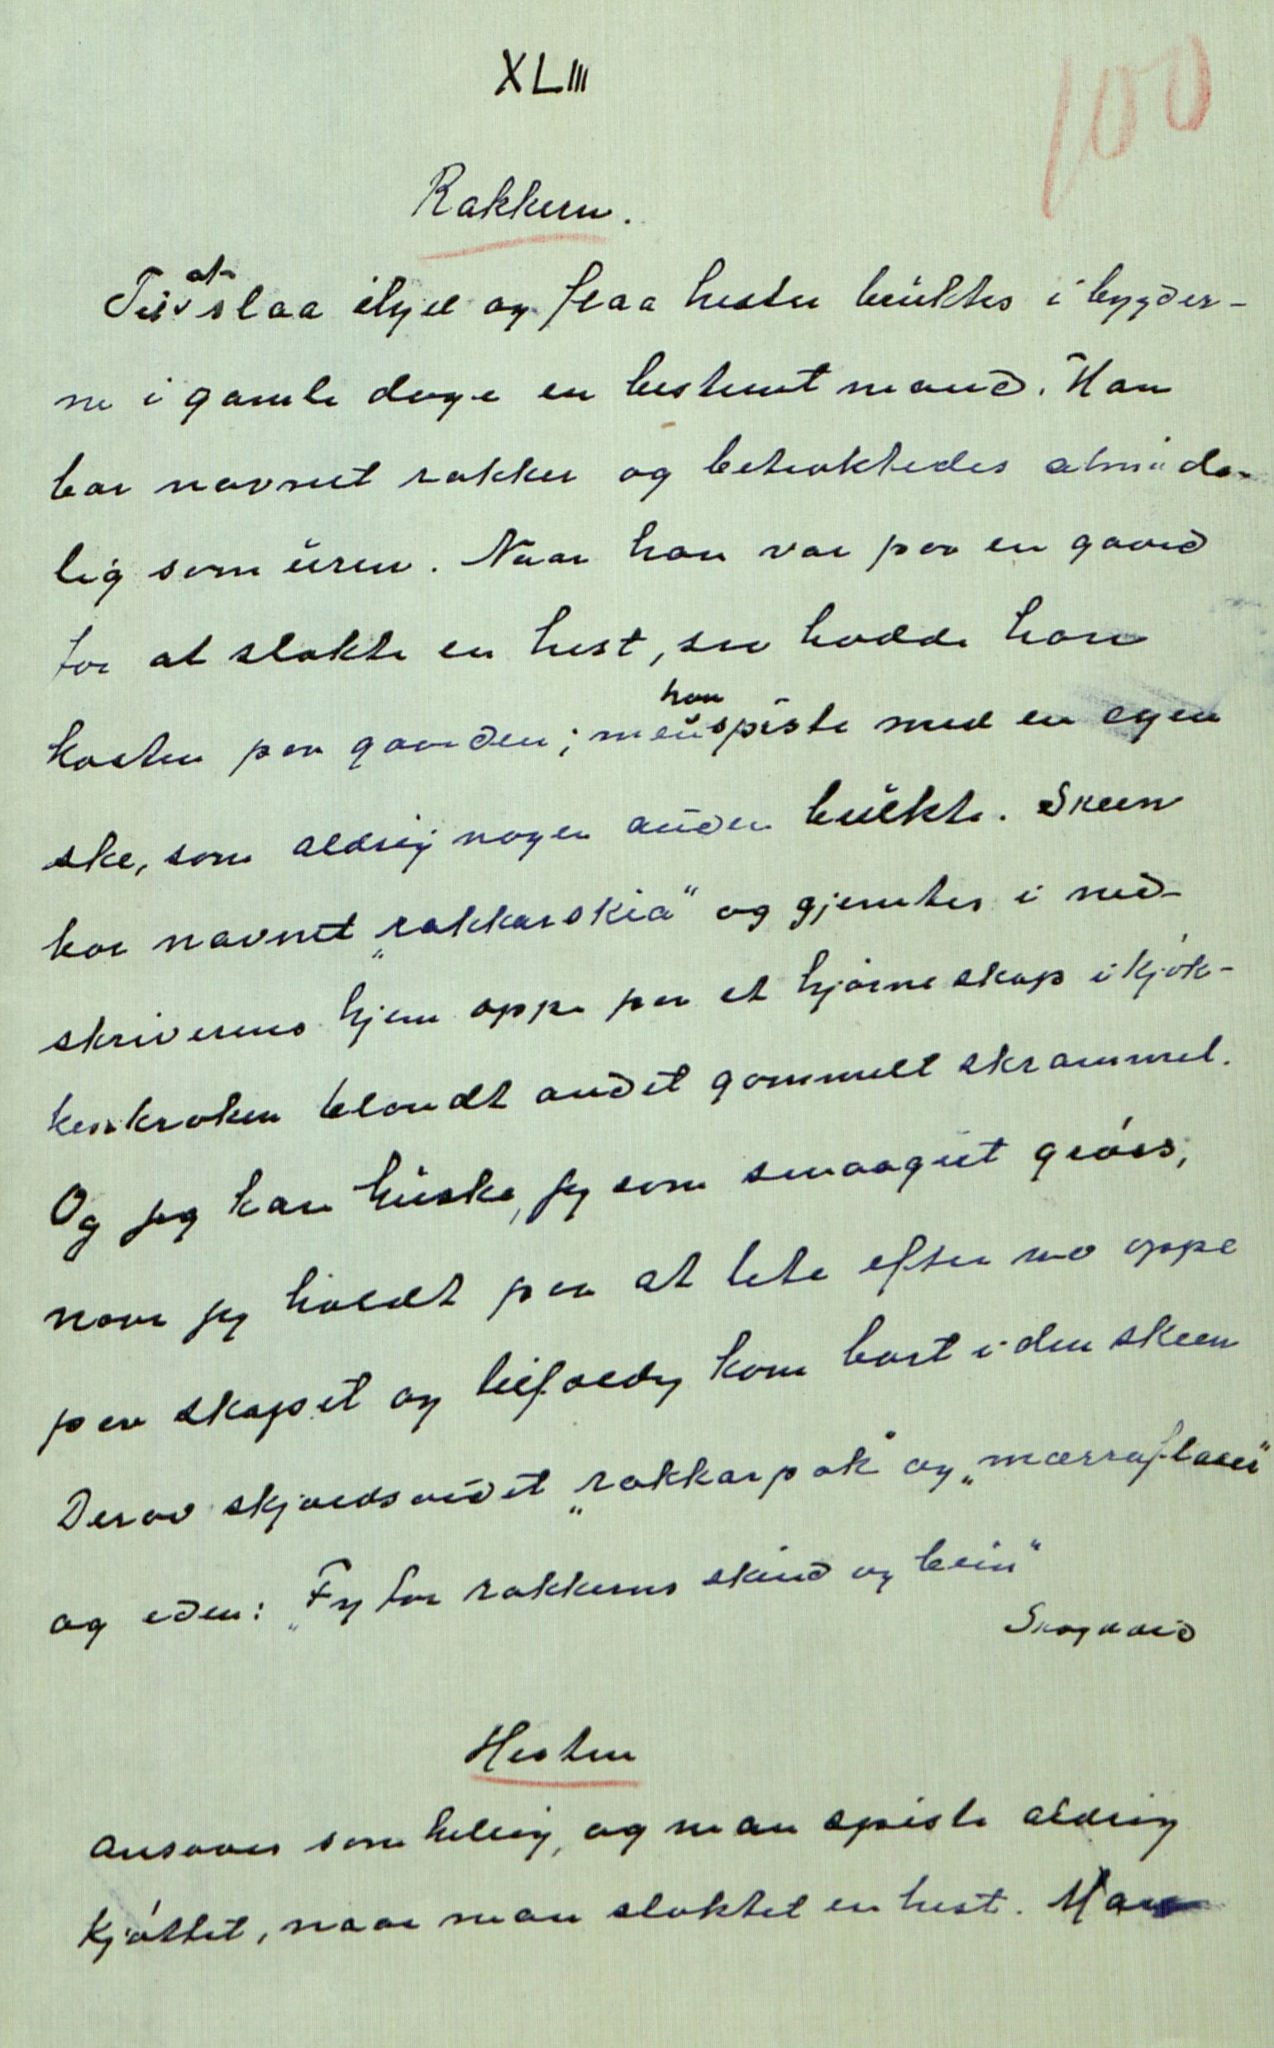 XLIII
100
Rakkern.
Til at slaa ihjel og flaa hester bruktes i bygder-
ne i gamle dage en bestemt mand. Han
bar navnet rakker og betraktedes alminde-
lig som uren. Naar han var paa en gaard
for at slakte en hest, saa hadde han
kosten paa gaarden; men han spiste med en egen
ske, som aldrig nogen anden brukte. Skeen
bar navnet „rakkarskia" og gjemtes i ned-
skriverens hjem oppe paa et hjørneskap i kjøk-
kenkroken blandt andet gammelt skrammel.
Og jeg kan huske, jeg som smaagut grøss,
naar jeg holdt paa at lete efter no oppe
paa skapet og tilfældig kom bort i den skeen
Derav skjældsordet „rakkarpak" og „mærraflaaer"
og eden: „Fy for rakkerens skind og bein"
Skogaard
Hesten
ansaaes som hellig, og man spiste aldrig
kjøttet, naar man slaktet en hest. Man